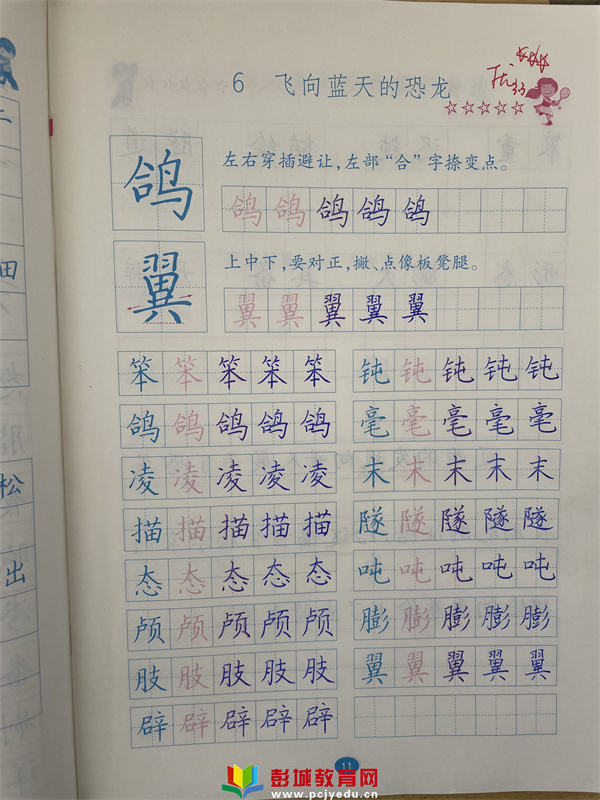 6 飞向蓝天的恐龙
优
33
鸽
左右穿插避让,左部“合”字捺变点。
鸽鸽鸽鸽鸽
翼
上中下,要对正,撇、点像板凳腿。
翼翼翼翼翼
笨笨笨笨笨
钝钝钝钝钝
鸽鸽鸽鸽鸽
毫毫毫毫毫
凌凌凌凌凌
末末末末末
描描描描描
隧隧隧隧隧
态态态态态
吨吨吨吨吨
颅颅颅颅颅
膨膨膨膨膨
肢肢肢肢肢
翼翼翼翼翼
辟辟辟辟辟
田
松
出
11
彭城教育网
www.pcjyedu.cn